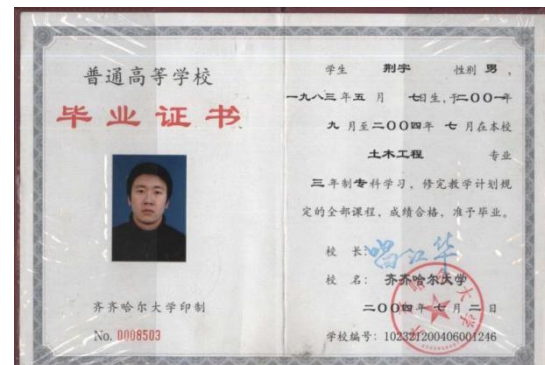 普通高等学校
毕业证书
齐齐哈尔大学印制
No. 0008503
学生 荆宇 性别 男，
一九八三年五月 七日生，于二〇〇一年
九月至二〇〇四年 七月在本校
土木工程 专业
三年制专科学习，修完教学计划规
定的全部课程，成绩合格，准予毕业。
校 长：
校 名：齐齐哈尔大学
二〇〇四年七月二日
学校编号：102321200406001246